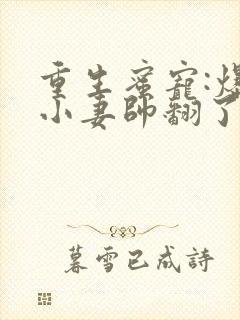 重生蜜寵:爆
小妻帥翻了
暮雪已成詩